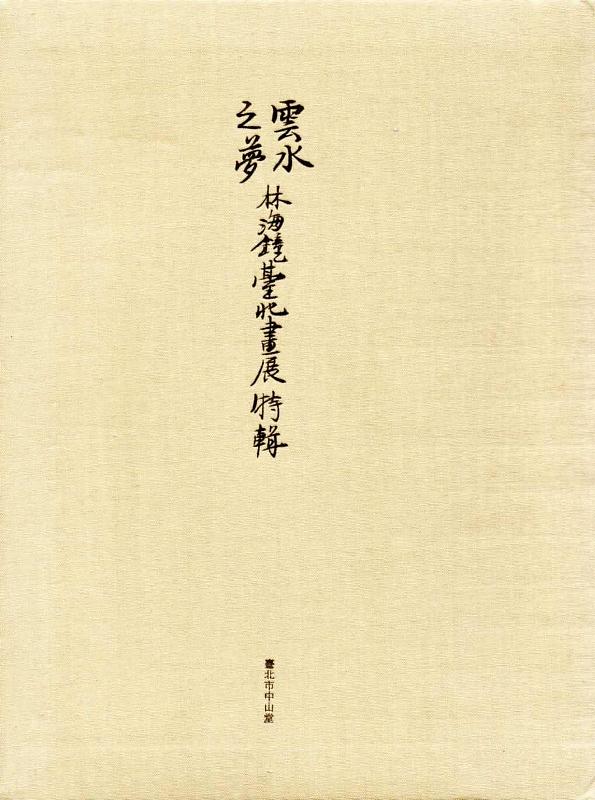 雲水
之夢
林海鐘臺北畫展特輯
臺北市中山堂